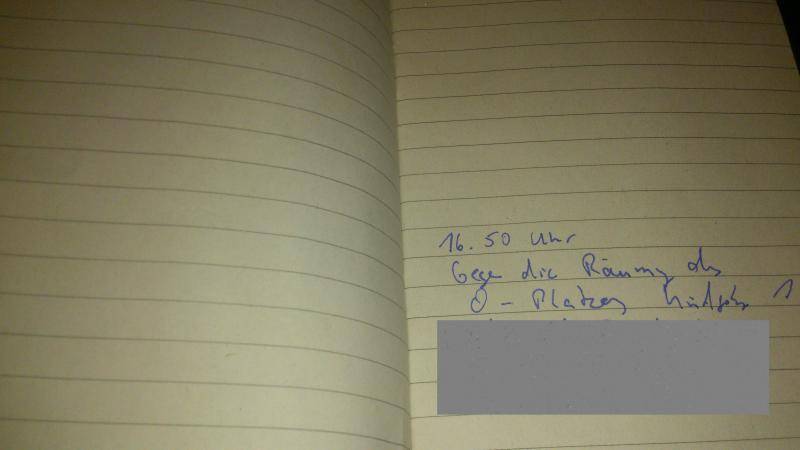 16.50 Uhr
Gegen die Räumung des
O-Platzes